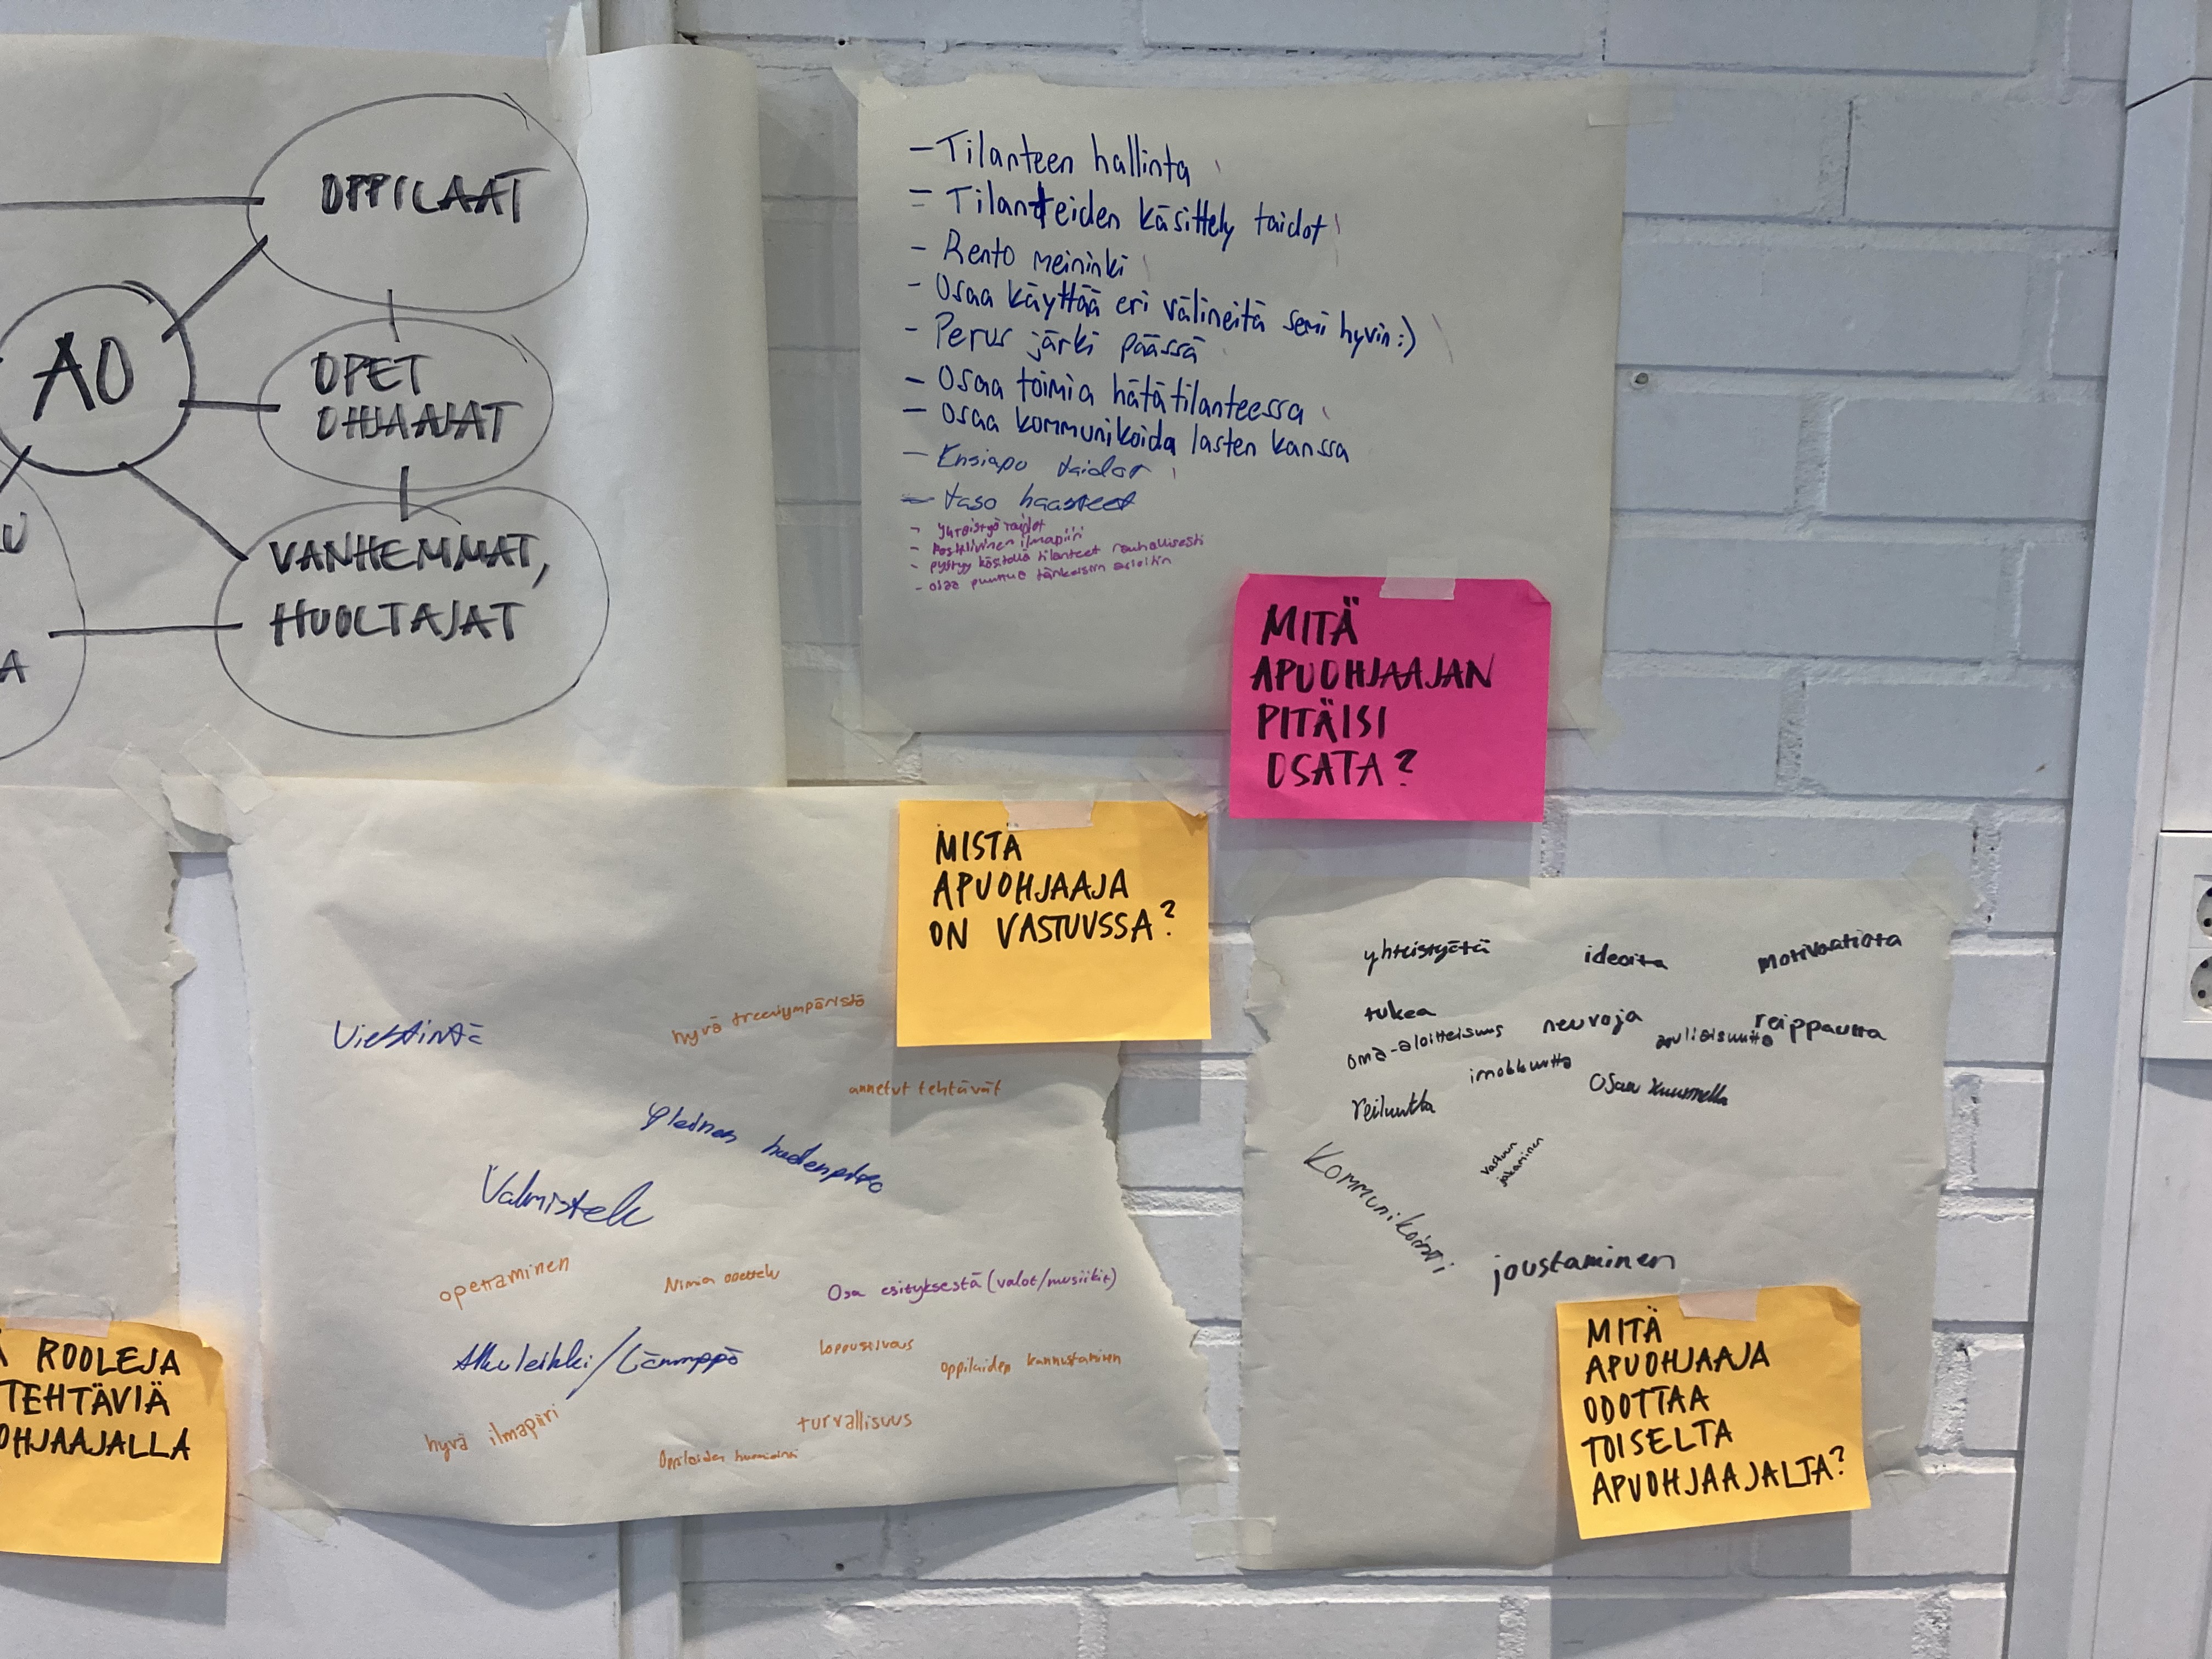 OPPILAAT
AO
OPET
OHJAAJAT
VANHEMMAT,
HUOLTAJAT
U
A
- Tilanteen hallinta
- Tilanteiden käsittely taidot
- Rento meininki
- Osaa käyttää eri välineitä semi hyvin :)
- Perus järki päässä
- Osaa toimia hätätilanteessa
- Osaa kommunikoida lasten kanssa
- Ensiapu taidot
- taso haasteet
- yhteistyö taidot
- positiivinen ilmapiiri
- pystyy käsitellä tilanteet rauhallisesti
- osaa puuttua tärkeisiin asioihin
MITÄ
APUOHJAAJAN
PITÄISI
OSATA?
MISTÄ
APUOHJAAJA
ON VASTUUSSA?
Viestintä
hyvä treeniympäristö
annetut tehtävät
Yleinen hauskanpito
Valmistelu
opettaminen
Nimien opettelu
Osa esityksestä (valot/musiikit)
Alkuleikki/Lämppä
loppusiivous
oppilaiden kannustaminen
hyvä ilmapiiri
turvallisuus
Oppilaiden huomiointi
ROOLEJA
TEHTÄVIÄ
OHJAAJALLA
yhteistyötä
ideoita
motivaatiota
tukea
neuvoja
reippautta
oma-aloitteisuus
avuliaisuutta
reiluutta
Osaa kuunnella
vastuun
jakaminen
Kommunikointi
joustaminen
MITÄ
APUOHJAAJA
ODOTTAA
TOISELTA
APUOHJAAJALTA?